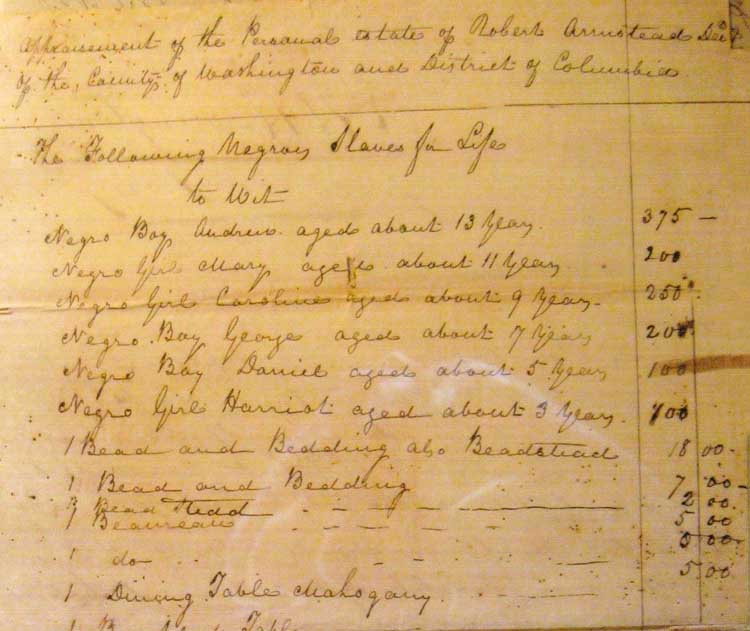 Appraisement of the Personal estate of Robert Armstead Decd
of the, County of Washington and District of Columbia
The Following Negroes Slaves for Life
to Wit
Negro Boy Andrew aged about 13 Years. 375 —
Negro Girl Mary aged about 11 Years 200
Negro Girl Caroline aged about 9 Years. 250
Negro Boy George aged about 7 Years 200
Negro Boy Daniel aged about 5 Years 100
Negro Girl Harriot aged about 3 Years. 100
1 Bead and Bedding also Beadstead 18 00
1 Bead and Bedding 7 00
Bead Stedd 2 00
Beaureau 5 00
1 do 5 00
1 Dining Table Mahogany 5 00
1 Table